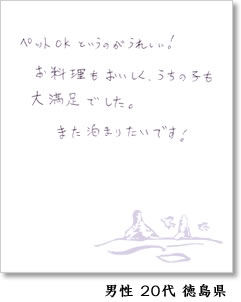 ペットOKというのがうれしい!
お料理もおいしく、うちの子も
大満足でした。
また泊まりたいです!
男性 20代 徳島県